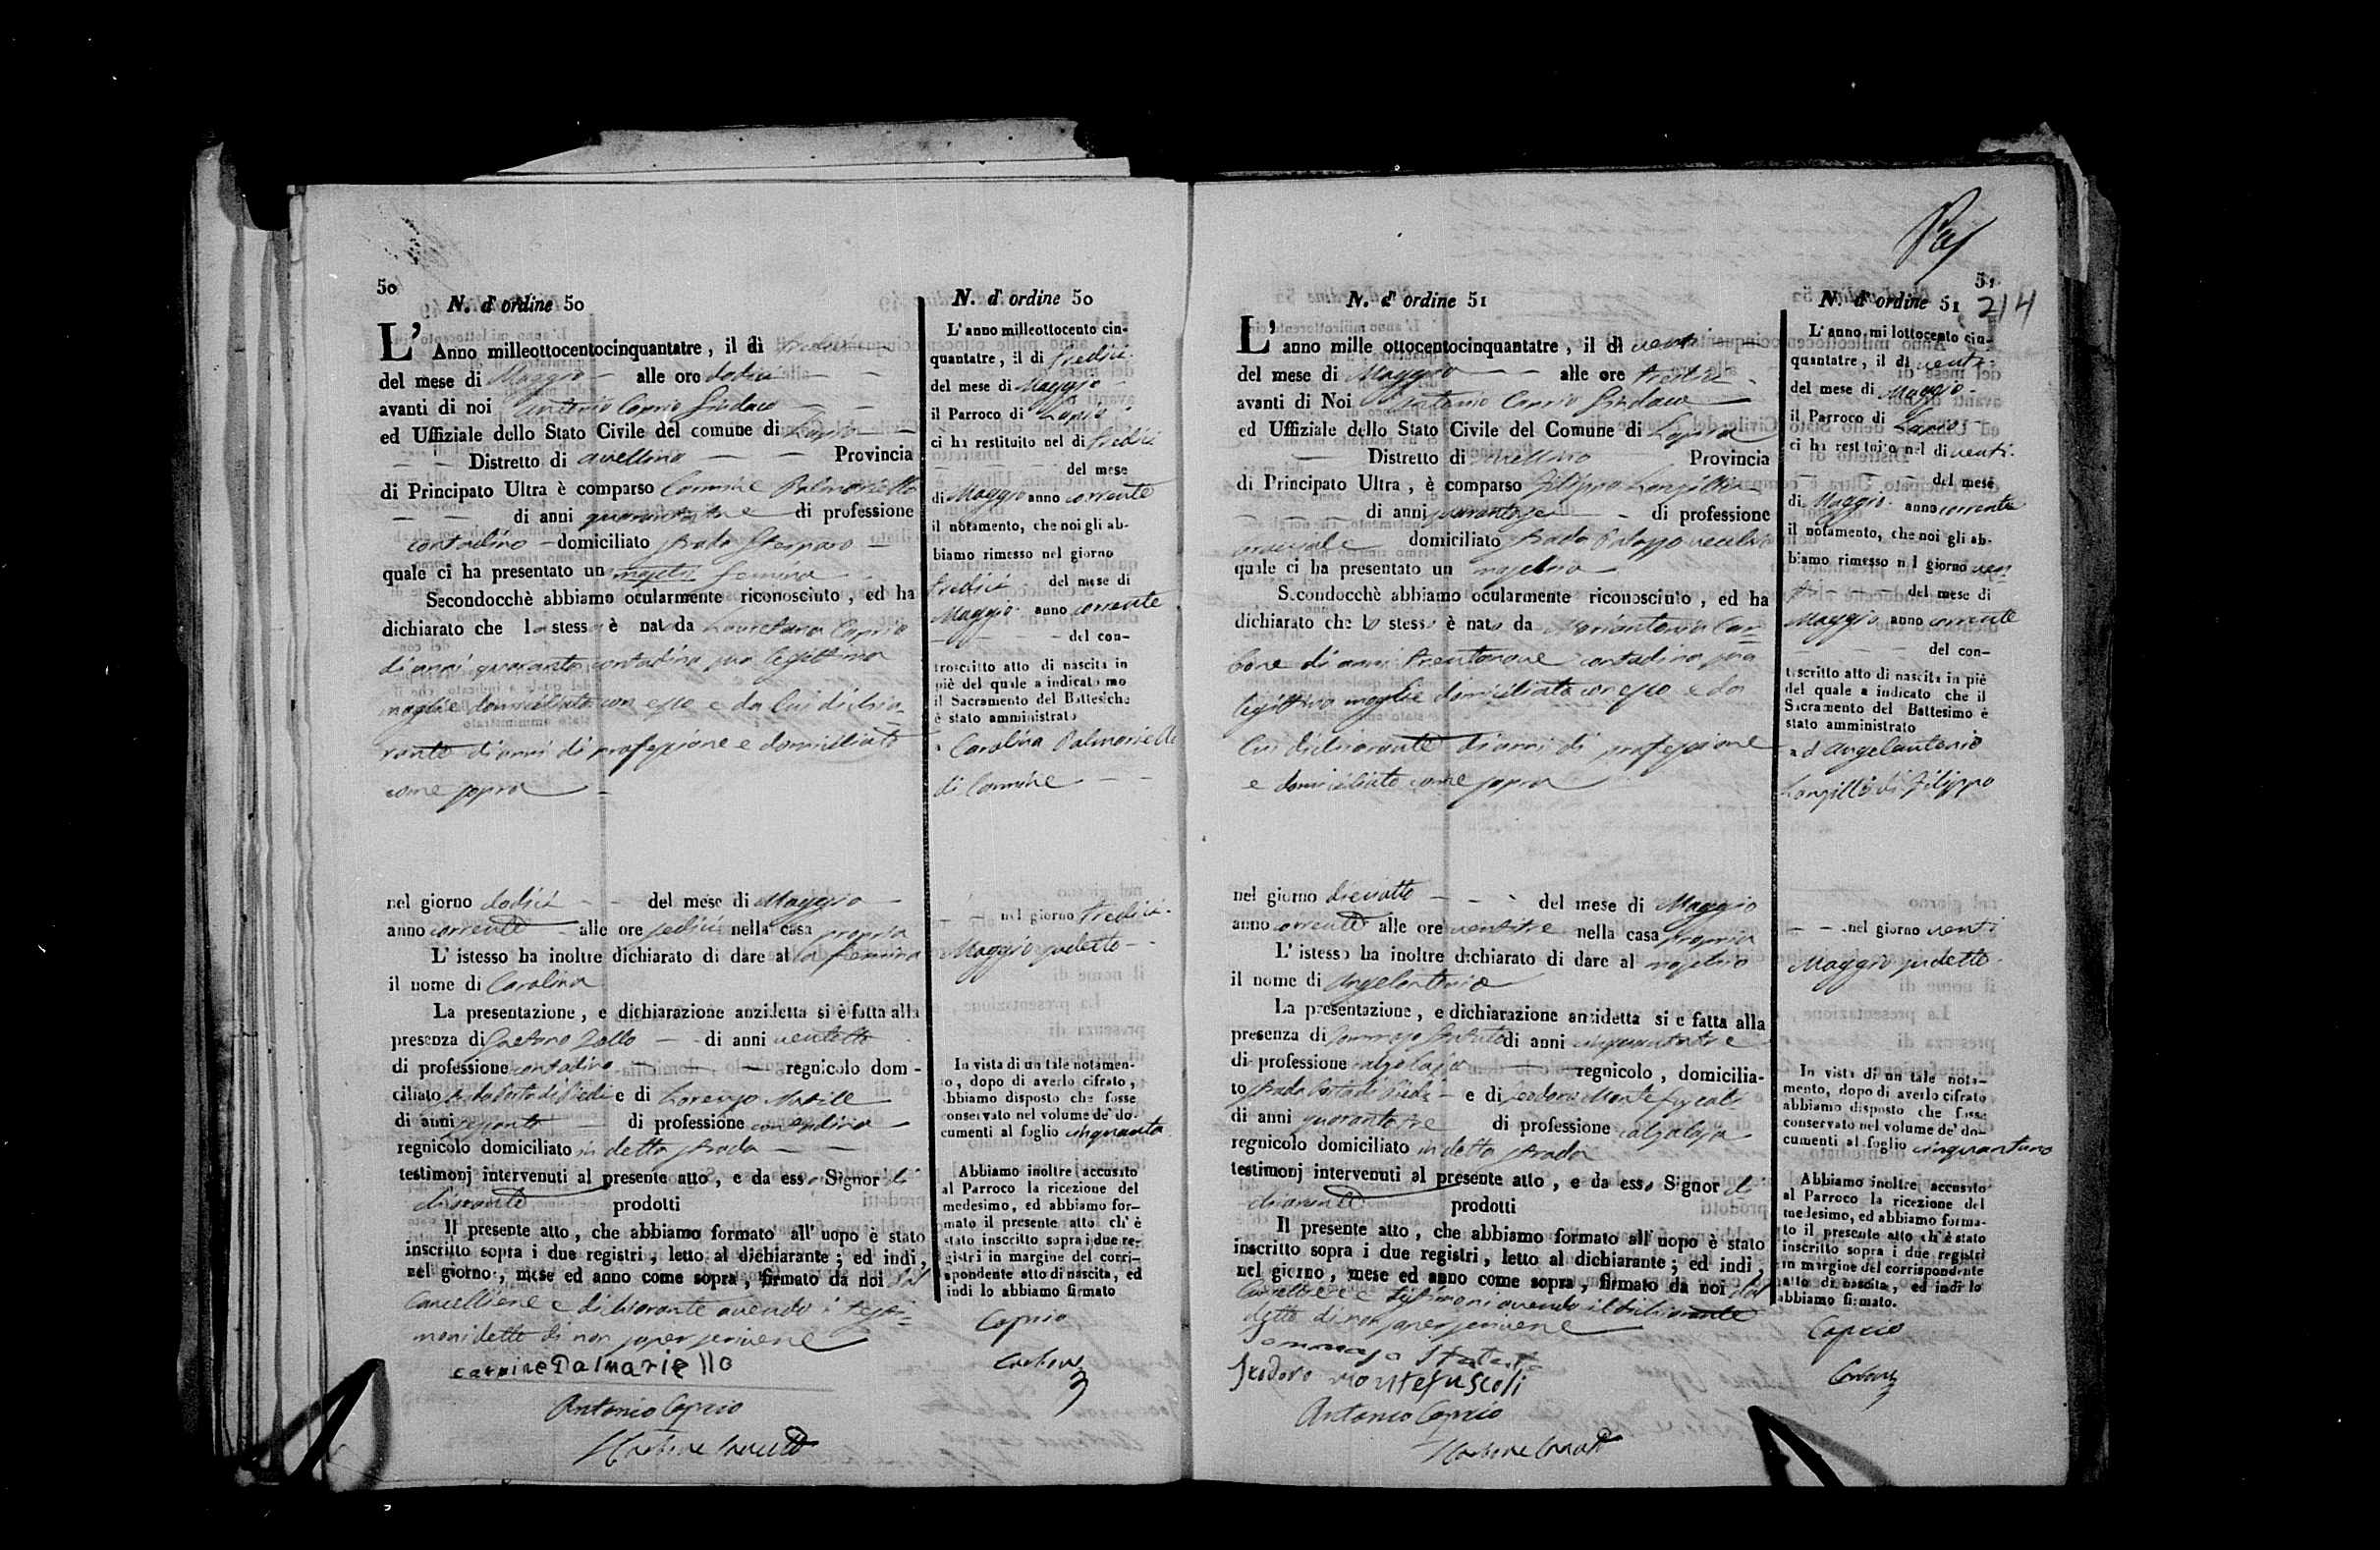 50
N. d'ordine 50
L' Anno milleottocentocinquantatre, il dì tredici
del mese di Maggio alle ore dodici
avanti di noi Antonio Caprio Sindaco
ed Uffiziale dello Stato Civile del comune di Lapio
Distretto di Avellino Provincia
di Principato Ultra è comparso Carmine Palmariello
di anni quarantatre di professione
contadino domiciliato strada
quale ci ha presentato una femina
Secondocchè abbiamo ocularmente riconosciuto, ed ha
dichiarato che la stessa è nata da Lauretana Caprio
di anni quaranta contadina sua legittima
moglie domiciliata con esso e da lui dichia-
rante di anni di professione e domiciliato
come sopra
nel giorno dodici del mese di Maggio
anno corrente alle ore sedici nella casa propria
L' istesso ha inoltre dichiarato di dare alla femina
il nome di Carolina
La presentazione, e dichiarazione anzidetta si è fatta alla
presenza di Gaetano Zollo di anni ventotto
di professione contadino regnicolo domi-
ciliato strada Porta di Piedi e di Lorenzo
di anni sessanta di professione contadino
regnicolo domiciliato in detta strada
testimonj intervenuti al presente atto, e da esso Signor di
chiarante prodotti
Il presente atto, che abbiamo formato all' uopo è stato
inscritto sopra i due registri, letto al dichiarante; ed indi,
nel giorno, mese ed anno come sopra, firmato da noi dal
Cancelliere e dichiarante avendo i testi-
moni detto di non saper scrivere
carmine Palmariello
Antonio Caprio
N. d' ordine 50
L' anno milleottocento cin-
quantatre, il di tredici
del mese di Maggio
il Parroco di Lapio
ci ha restituito nel di tredici
del mese
di Maggio anno corrente
il notamento, che noi gli ab-
biamo rimesso nel giorno
tredici del mese di
Maggio anno corrente
del con-
troscritto atto di nascita in
piè del quale a indicato mo
il Sacramento del Battesiche
è stato amministrato
a Carolina Palmariello
di Carmine
nel giorno tredici
Maggio sudetto
In vista di un tale notamen-
to, dopo di averlo cifrato,
abbiamo disposto che fosse
conservato nel volume de' do-
cumenti al foglio cinquanta
Abbiamo inoltre accusato
al Parroco la ricezione del
medesimo, ed abbiamo for-
mato il presente atto ch' è
stato inscritto sopra i due re-
gistri in margine del corri-
spondente atto di nascita, ed
indi lo abbiamo firmato
Caprio
51
214
N. d' ordine 51
L' anno mille ottocentocinquantatre, il dì venti
del mese di Maggio alle ore tredici
avanti di Noi Antonio Caprio Sindaco
ed Uffiziale dello Stato Civile del Comune di Lapio
Distretto di Avellino Provincia
di Principato Ultra, è comparso Filippo Lanzillo
di anni quarantasei di professione
bracciale domiciliato strada Palazzo vecchio
quale ci ha presentato un maschio
Secondocchè abbiamo ocularmente riconosciuto, ed ha
dichiarato che lo stesso è nato da Mariantonia Car-
bone di anni trentanove contadina sua
legittima moglie domiciliata con esso e da
lui dichiarante di anni di professione
e domiciliato come sopra
nel giorno dieciotto del mese di Maggio
anno corrente alle ore ventitre nella casa propria
L' istesso ha inoltre dichiarato di dare al maschio
il nome di Angelantonio
La presentazione, e dichiarazione anzidetta si e fatta alla
presenza di Tommaso di anni cinquantatre
di professione calzolajo regnicolo, domicilia-
to strada Porta di Piedi e di Teodoro Montefuscoli
di anni quarantatre di professione calzolajo
regnicolo domiciliato in detta strada
testimonj intervenuti al presente atto, e da esso Signor di
chiarante prodotti
Il presente atto, che abbiamo formato all' uopo è stato
inscritto sopra i due registri, letto al dichiarante; ed indi,
nel giorno, mese ed anno come sopra, firmato da noi dal
Cancelliere e testimoni avendo il dichiarante
detto di non saper scrivere
Teodoro Montefuscoli
Antonio Caprio
N. d' ordine 51
L' anno mi lottocento cin-
quantatre, il di venti
del mese di Maggio
il Parroco di Lapio
ci ha restituito nel di venti
del mese
di Maggio anno corrente
il notamento, che noi gli ab-
biamo rimesso nel giorno ven
ti del mese di
Maggio anno corrente
del con-
troscritto atto di nascita in piè
del quale a indicato che il
Sacramento del Battesimo è
stato amministrato
ad Angelantonio
Lanzillo di Filippo
nel giorno venti
Maggio sudetto
In vista di un tale nota-
mento, dopo di averlo cifrato
abbiamo disposto che fosse
conservato nel volume de' do-
cumenti al foglio cinquantuno
Abbiamo inoltre accusato
al Parroco la ricezione del
medesimo, ed abbiamo forma-
to il presente atto ch' è stato
inscritto sopra i due registri
in margine del corrispondente
atto di nascita, ed indi lo
abbiamo firmato.
Caprio